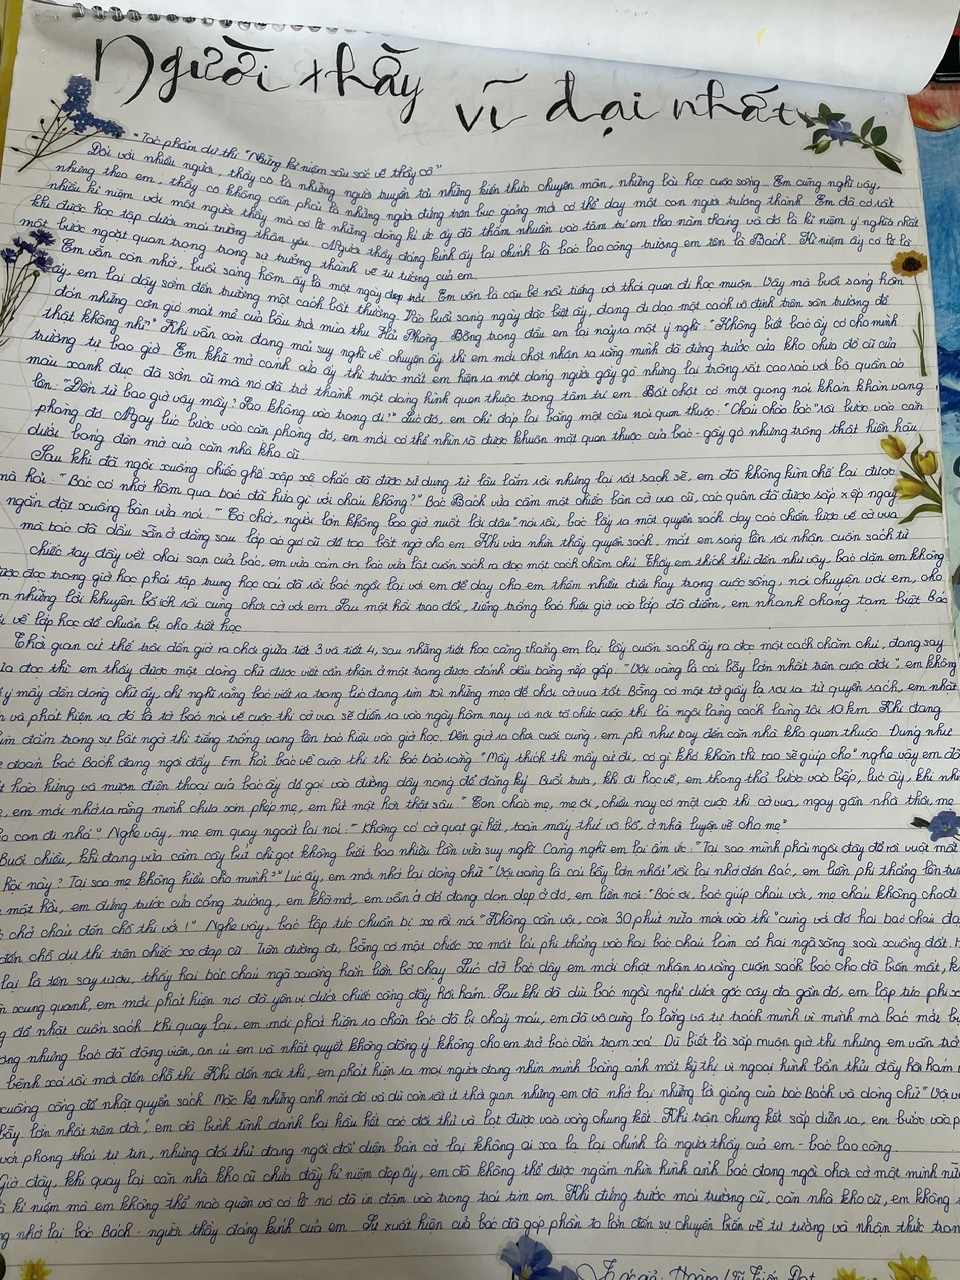 Người thầy
vĩ đại nhất
"Tác phẩm dự thi "Những kỉ niệm sâu sắc về thầy cô"
Đối với nhiều người, thầy cô là những người truyền tải những kiến thức chuyên môn, những bài học cuộc sống. Em cũng nghĩ vậy,
nhưng theo em, thầy cô không cần phải là những người đứng trên bục giảng mà có thể dạy một con người trưởng thành. Em đã có rất
nhiều kỉ niệm với một người thầy mà có lẽ những dòng kí ức ấy đã thấm nhuần vào tâm trí em theo năm tháng và đó là kỉ niệm ý nghĩa nhất
khi được học tập dưới mái trường thân yêu. Người thầy đáng kính ấy lại chính là bác lao công trường em tên là Bách. Kỉ niệm ấy có lẽ là
một bước ngoặt quan trọng trong sự trưởng thành về tư tưởng của em.
Em vẫn còn nhớ, buổi sáng hôm ấy là một ngày đẹp trời. Em vốn là cậu bé nổi tiếng với thói quen đi học muộn. Vậy mà buổi sáng hôm
ấy, em lại dậy sớm đến trường một cách bất thường. Vào buổi sáng ngày đặc biệt ấy, đang đi dạo một cách vô định trên sân trường để
đón những cơn gió mát mẻ của bầu trời mùa thu Hải Phòng. Bỗng trong đầu em lại nảy ra một ý nghĩ: "Không biết bác ấy có cho mình
thật không nhỉ?" Khi vẫn còn đang mải suy nghĩ về chuyện ấy thì em mới chợt nhận ra rằng mình đã đứng trước cửa kho chứa đồ cũ của
trường tự bao giờ. Em khẽ mở cánh cửa ấy thì trước mắt em hiện ra một dáng người gầy gò nhưng lại trông rất cao ráo với bộ quần áo
màu xanh đục đã sờn cũ mà nó đã trở thành một dáng hình quen thuộc trong tâm trí em. Bất chợt có một giọng nói khàn khàn vang
lên: "Đến từ bao giờ vậy mày? Sao không vào trong đi!" Lúc đó, em chỉ đáp lại bằng một câu nói quen thuộc: "Cháu chào bác" rồi bước vào căn
phòng đó. Ngay lúc bước vào căn phòng đó, em mới có thể nhìn rõ được khuôn mặt quen thuộc của bác - gầy gò nhưng trông thật hiền hậu
dưới bóng đèn mờ của căn nhà kho cũ.
Sau khi đã ngồi xuống chiếc ghế xập xệ chắc đã được sử dụng từ lâu lắm rồi nhưng lại rất sạch sẽ, em đã không kìm chế lại được
mà hỏi: "Bác có nhớ hôm qua bác đã hứa gì với cháu không?" Bác Bách vừa cầm một chiếc bàn cờ vua cũ, các quân đã được sắp xếp ngay
ngắn đặt xuống bàn vừa nói: "Có chớ, người lớn không bao giờ nuốt lời đâu" nói rồi, bác lấy ra một quyển sách dạy các chiến lược về cờ vua
mà bác đã dấu sẵn ở đằng sau lớp áo gió cũ để tạo bất ngờ cho em. Khi vừa nhìn thấy quyển sách, mắt em sáng lên rồi nhận cuốn sách từ
chiếc tay đầy vết chai sạn của bác, em vừa cảm ơn bác vừa lật cuốn sách ra đọc một cách chăm chú. Thấy em thích thú đến như vậy, bác dặn em không
được đọc trong giờ học phải tập trung học cái đã rồi bác ngồi lại với em để dạy cho em thêm nhiều điều hay trong cuộc sống, nói chuyện với em, cho
những lời khuyên bổ ích rồi cùng chơi cờ với em. Sau một hồi trao đổi, tiếng trống báo hiệu giờ vào lớp đã điểm, em nhanh chóng tạm biệt bác
về lớp học để chuẩn bị cho tiết học.
Thời gian cứ thế trôi đến giờ ra chơi giữa tiết 3 và tiết 4, sau những tiết học căng thẳng em lại lấy cuốn sách ấy ra đọc một cách chăm chú, đang say
đọc thì em thấy được một dòng chữ được viết cẩn thận ở một trang được đánh dấu bằng nếp gấp: "Vội vàng là cái bẫy lớn nhất trên cuộc đời", em không
ý mấy đến dòng chữ ấy, chỉ nghĩ rằng bác viết ra trong lúc đang tìm tòi những mẹo để chơi cờ vua tốt. Bỗng có một tờ giấy lạ rơi ra từ quyển sách, em nhặt
và phát hiện ra đó là tờ báo nói về cuộc thi cờ vua sẽ diễn ra vào ngày hôm nay và nơi tổ chức cuộc thi là ngôi làng cách làng tôi 10 km. Khi đang
đắm trong sự bất ngờ thì tiếng trống vang lên báo hiệu vào giờ học. Đến giờ ra chơi cuối cùng, em phi như bay đến căn nhà kho quen thuộc. Đúng như
đoán, bác Bách đang ngồi đấy. Em hỏi bác về cuộc thi thì bác bảo rằng "Mày thích thì mày cứ đi, có gì khó khăn thì tao sẽ giúp cho" nghe vậy em đã
hào hứng và mượn điện thoại của bác ấy để gọi vào đường dây nóng để đăng ký. Buổi trưa, khi đi học về, em thong thả bước vào bếp, lúc ấy, khi nhìn
em mới nhớ ra rằng mình chưa xin phép mẹ, em hít một hơi thật sâu: "Con chào mẹ, mẹ ơi, chiều nay có một cuộc thi cờ vua, ngay gần nhà thôi, mẹ
con đi nhá". Nghe vậy, mẹ em quay ngoắt lại nói: "Không có cờ quạt gì hết, toàn mấy thứ vô bổ, ở nhà luyện vẽ cho mẹ"
Buổi chiều, khi đang vừa cầm cây bút chì gọt không biết bao nhiêu lần vừa suy nghĩ. Càng nghĩ em lại ấm ức: "Tại sao mình phải ngồi đây để rồi vuột mất
hội này? Tại sao mẹ không hiểu cho mình?" Lúc ấy, em mới nhớ lại dòng chữ "Vội vàng là cái bẫy lớn nhất" rồi lại nhớ đến Bác, em liền phi thẳng lên
một hồi, em đứng trước cửa cổng trường, em khẽ mở, em vẫn ở đó đang dọn dẹp ở đó, em liền nói: "Bác ơi, bác giúp cháu với, mẹ cháu không cho đi
chở cháu đến chỗ thi với!" Nghe vậy, bác lập tức chuẩn bị xe rồi nói "Không cần vội, còn 30 phút nữa mới vào thi" cùng với đó hai bác cháu
đến chỗ dự thi trên chiếc xe đạp cũ. Trên đường đi, bỗng có một chiếc xe mất lái phi thẳng vào hai bác cháu làm cả hai ngã sõng soài xuống đất.
lại là tên say rượu, thấy hai bác cháu ngã xuống hắn liền bỏ chạy. Lúc đỡ bác dậy em mới chợt nhận ra rằng cuốn sách bác cho đã biến mất,
xung quanh, em mới phát hiện nó đã yên vị dưới chiếc cống đầy hôi hám. Sau khi đã dìu bác ngồi nghỉ dưới gốc cây đa gần đó, em lập tức phi
để nhặt cuốn sách. Khi quay lại, em mới phát hiện ra chân bác đã bị chảy máu, em đã vô cùng lo lắng và tự trách mình vì mình mà bác mới bị
nhưng bác đã động viên, an ủi em và nhất quyết không đồng ý không cho em trở bác đến trạm xá. Dù biết là sắp muộn giờ thi nhưng em vẫn
bệnh xá rồi mới đến chỗ thi. Khi đến nơi thi, em phát hiện ra mọi người đang nhìn mình bằng ánh mắt kỳ thị vì ngoại hình bẩn thỉu đầy hôi hám
xuống cống để nhặt quyển sách. Mặc kệ những ánh mắt đó và dù còn rất ít thời gian nhưng em đã nhớ lại những lời giảng của bác Bách và dòng chữ "Vội
bẫy lớn nhất trên đời", em đã bình tĩnh đánh bại hầu hết các đối thủ và lọt được vào vòng chung kết. Khi trận chung kết sắp diễn ra, em bước vào
với phong thái tự tin, nhưng đối thủ đang ngồi đối diện bàn cờ lại không ai xa lạ lại chính là người thầy của em - bác lao công.
Giờ đây, khi quay lại căn nhà kho cũ chứa đầy kỉ niệm đẹp ấy, em đã không thể được ngắm nhìn hình ảnh bác đang ngồi chơi cờ một mình
kỉ niệm mà em không thể nào quên và có lẽ nó đã in đậm vào trong trái tim em. Khi đứng trước mái trường cũ, căn nhà kho cũ, em không
nhớ lại bác Bách - người thầy đáng kính của em. Sự xuất hiện của bác đã góp phần to lớn đến sự chuyển biến về tư tưởng và nhận thức
Tác giả: Hoàng Vũ Tiến Đạt